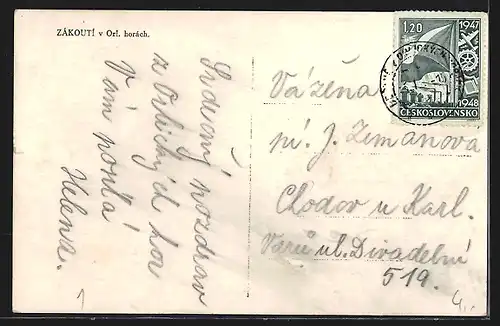 ZÁKOUTÍ v Orl. horách.
Srdečný pozdrav
z Orlických hor
Vám posílá
Helena.
1
1.20
1947
1948
ČESKOSLOVENSKO
Vážená
pí. J. Zemanová
Chodov u Karl.
Varů ul. Divadelní
519.
4,-